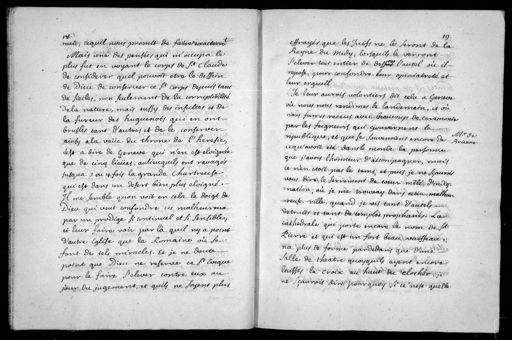 18.
mais, ce qu'il nous promit de faire exactemt.
Mais une des pensées qui m'occupa le
plus fut en voyant le corps de St Claude
de considerer quel pouvoit etre le dessein
de Dieu de conserver ce St corps depuis tant
de siecles, non seulement de la corruptibilité
de la nature, mais aussy des insultes et de
la fureur des huguenots qui en ont
bruslé tant d'autres et de le conserver
ainsy a la veüe du throne de l'heresie,
c'est a dire de Geneve qui n'en est eloignée
que de cinq lieües, autour quels ont ravagés
jusqua 3 ou 4 fois la grande Chartreuse
qui est dans un desert bien plus eloigné.
Il me semble qu'on voit en cela le doigt de
Dieu qui veut confondre ces malheureux
par un prodige si continuel et si sensible,
et leur faire voir par la qu'il n'y a point
d'autre Eglise que la Romaine où se
font de tels miracles. et je ne doute
point que Dieu ne reserve ce St Evêque
pour le faire s'elever contre eux au
jour du jugement, et qu'ils ne soyent plus
19.
effrayés que les Juifs ne le seront de la
Reyne du Midy, lorsquils le verront
s'elever tout entier de dessous l'autel où il
repose, pour confondre leur opiniatreté et
leur orgueil.
Je leur aurois volontiers dit cela a Geneve
où nous nous rendimes le lendemain, et où
nous fumes receus avec beaucoup de ceremonie
par les seigneurs qui gouvernent leur
republique, et qui se souvenant encore de
ce qu'avoit eté dans le monde la personne
que j'avois l'honneur d'accompagner, mais
ce n'en etoit pas le tems, et puis je ne sçaurois
vous dire le serrement de coeur mêlé d'indig-
nation, où je me trouvay dans cette malheu-
reuse ville, quand je vis tant d'autels
detruits et tant de temples prophanés. La
cathedrale qui porte encore le nom de St
Pierre et qui est un fort beau vaisseau,
n'a plus de forme par dedans que d'une
salle de theatre quoyqu'ils ayent encore
laissés la croix au haut du clocher, je
ne sçaurois dire pourquoy. Si ce n'est quelle
Mr. de